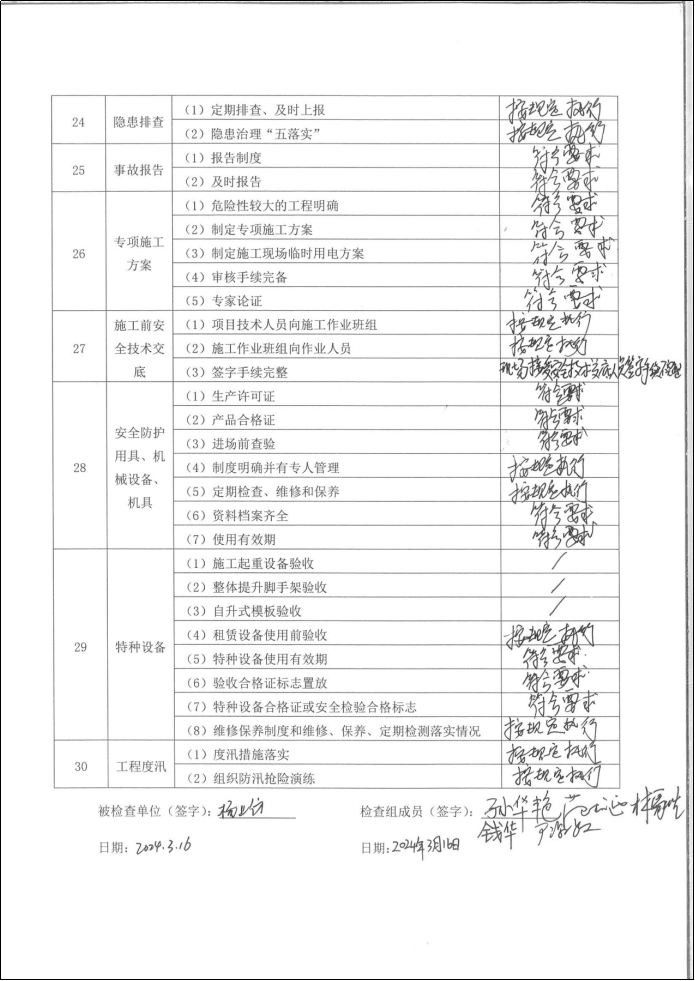 24 隐患排查 (1) 定期排查、及时上报 按规定执行
(2) 隐患治理“五落实” 按规定执行
25 事故报告 (1) 报告制度 符合要求
(2) 及时报告 符合要求
26 专项施工方案 (1) 危险性较大的工程明确 符合要求
(2) 制定专项施工方案 符合要求
(3) 制定施工现场临时用电方案 符合要求
(4) 审核手续完备 符合要求
(5) 专家论证 符合要求
27 施工前安全技术交底 (1) 项目技术人员向施工作业班组 按规定执行
(2) 施工作业班组向作业人员 按规定执行
(3) 签字手续完整 现场接受安全技术交底人员签字手续
28 安全防护用具、机械设备、机具 (1) 生产许可证 符合要求
(2) 产品合格证 符合要求
(3) 进场前查验 符合要求
(4) 制度明确并有专人管理 按规定执行
(5) 定期检查、维修和保养 按规定执行
(6) 资料档案齐全 符合要求
(7) 使用有效期 符合要求
29 特种设备 (1) 施工起重设备验收 /
(2) 整体提升脚手架验收 /
(3) 自升式模板验收 /
(4) 租赁设备使用前验收 按规定执行
(5) 特种设备使用有效期 符合要求
(6) 验收合格证标志置放 符合要求
(7) 特种设备合格证或安全检验合格标志 符合要求
(8) 维修保养制度和维修、保养、定期检测落实情况 按规定执行
30 工程度汛 (1) 度汛措施落实 按规定执行
(2) 组织防汛抢险演练 按规定执行
被检查单位（签字）： 检查组成员（签字）：孙华艳
钱华
日期：2024.3.16 日期：2024年3月16日